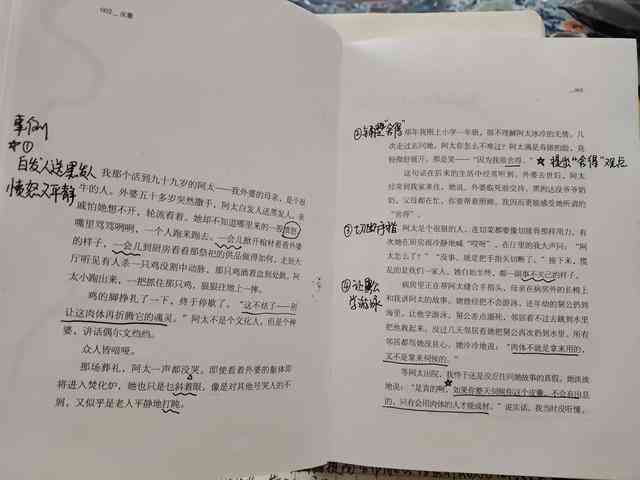 002 皮囊
事例
☆①
白发人送黑发人
愤怒又平静
我那个活到九十九岁的阿太——我外婆的母亲，是个很
牛的人。外婆五十多岁突然撒手，阿太白发人送黑发人。亲
戚怕她想不开，轮流看着。她却不知道哪里来的一股愤怒，
嘴里骂骂咧咧，一个人跑来跑去。一会儿掀开棺材看看外婆
的样子，一会儿到厨房看看那祭祀的供品做得如何，走到大
厅听见有人杀一只鸡没割中动脉，那只鸡洒着血到处跳，阿
太小跑出来，一把抓住那只鸡，狠狠往地上一摔。
鸡的脚挣扎了一下，终于停歇了。“这不结了——别
让这肉体再折腾它的魂灵。”阿太不是个文化人，但是个神
婆，讲话偶尔文绉绉。
众人皆喑哑。
那场葬礼，阿太一声都没哭。即使看着外婆的躯体即
将进入焚化炉，她也只是乜斜着眼，像是对其他号哭人的不
屑，又似乎是老人平静地打盹。
003
“舍得”
那年我刚上小学一年级，很不理解阿太冰冷的无情。几
次走过去问她，阿太你怎么不难过？阿太满是寿斑的脸，竟
轻微舒展开，那是笑——“因为我很舍得。”
☆ 提出“舍得”观点
这句话在后来的生活中经常听到。外婆去世后，阿太
经常到我家来住，她说，外婆临死前交待，黑狗达没爷爷奶
奶，父母都在忙，你要帮着照顾。我因而更能感受她所谓的
“舍得”。
③切断手指
阿太是个很狠的人，连切菜都要像切排骨那样用力。有
次她在厨房很冷静地喊“哎呀”，在厅里的我大声问：“阿
太怎么了？”“没事，就是把手指头切断了。”接下来，慌
乱的是我们一家人，她自始至终，都一副事不关己的样子。
病房里正在帮阿太缝合手指头，母亲在病房外的长椅上
和我讲阿太的故事。她曾经把不会游泳，还年幼的舅公扔到
海里，让他学游泳，舅公差点溺死，邻居看不过去跳到水里
把他救起来。没过几天邻居看她把舅公再次扔到水里。所有
邻居都骂她没良心，她冷冷地说：“肉体不就是拿来用的，
又不是拿来伺候的。”
等阿太出院，我终于还是没忍住问她故事的真假。她淡淡
地说：“是真的啊，如果你整天伺候你这个皮囊，不会有出息
的，只有会用肉体的人才能成材。”说实话，我当时没听懂。
学游泳